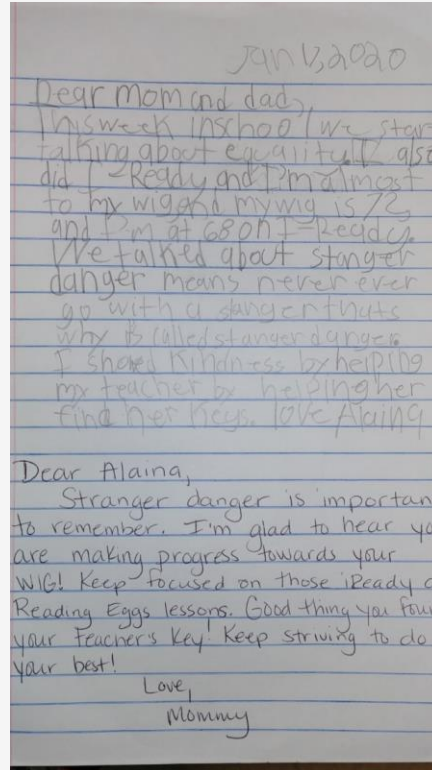 Jan 13, 2020
Dear Mom and dad,
This week inschool we star
talking about equality. I also
did I-Ready and I'm almost
to my wig and my wig is 72,
and I'm at 68 on I-Ready.
We talked about stanger
danger means never ever
go with a stanger thats
why is called stanger danger.
I showed Kindness by helping
my teacher by helping her
find her keys. love Alaina
Dear Alaina,
Stranger danger is importan
to remember. I'm glad to hear yo
are making progress towards your
WIG! Keep focused on those iReady a
Reading Eggs lessons. Good thing you foun
your teacher's key! Keep striving to do
your best!
Love,
Mommy